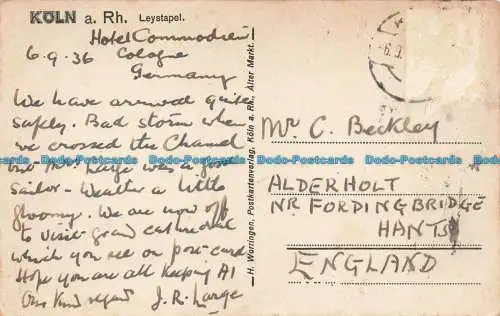 KÖLN a. Rh. Leystapel.
Hotel Commodore
6.9.36 Cologne
Germany
We have arrived quite
safely. Bad storm when
we crossed the Channel
but Mrs Large was a good
sailor - Weather a little
gloomy. We are now off
to visit grand cathedral
which you see on post-card
Hope you are all keeping A1
Our kind regards J. R. Large
H. Worringen, Postkartenverlag, Köln a. Rh., Alter Markt.
Mr C. Beckley
ALDERHOLT
NR FORDINGBRIDGE
HANTS
ENGLAND
Dodo-Postcards Dodo-Postcards Dodo-Postcards Dodo-Postcards Dodo-Postcards